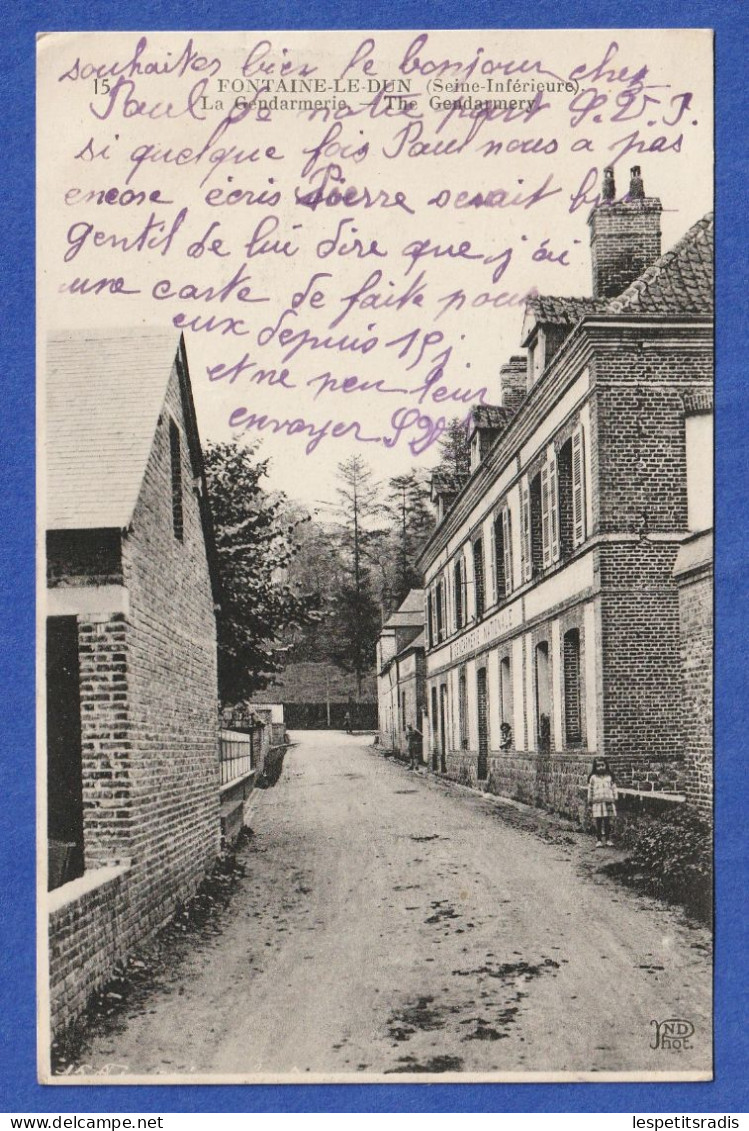 souhaites bien le bonjour chez
15. FONTAINE-LE-DUN (Seine-Inférieure).
Paul de notre part S.V.P.
La Gendarmerie. — The Gendarmery.
si quelque fois Paul nous a pas
encore écris Pierre serait bien
gentil de lui dire que j'ai
une carte de faite pour
eux depuis 15j
et ne peu leur
envoyer
GENDARMERIE NATIONALE
ND
Phot.
lespetitsradis
delcampe.net